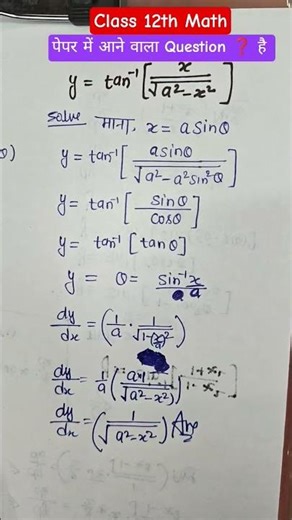 Class 12th Math
पेपर में आने वाला Question ❓ है
y = tan⁻¹[x/√(a²-x²)]
Solve माना, x = a sinθ
y = tan⁻¹[a sinθ/√(a²-a²sin²θ)]
y = tan⁻¹[sinθ/cosθ]
y = tan⁻¹[tanθ]
y = θ = sin⁻¹ x/a
dy/dx = (1/a · 1/√(1-(x/a)²))
dy/dx = 1/a (a×1/√(a²-x²))
dy/dx = (1/√(a²-x²)) Ans